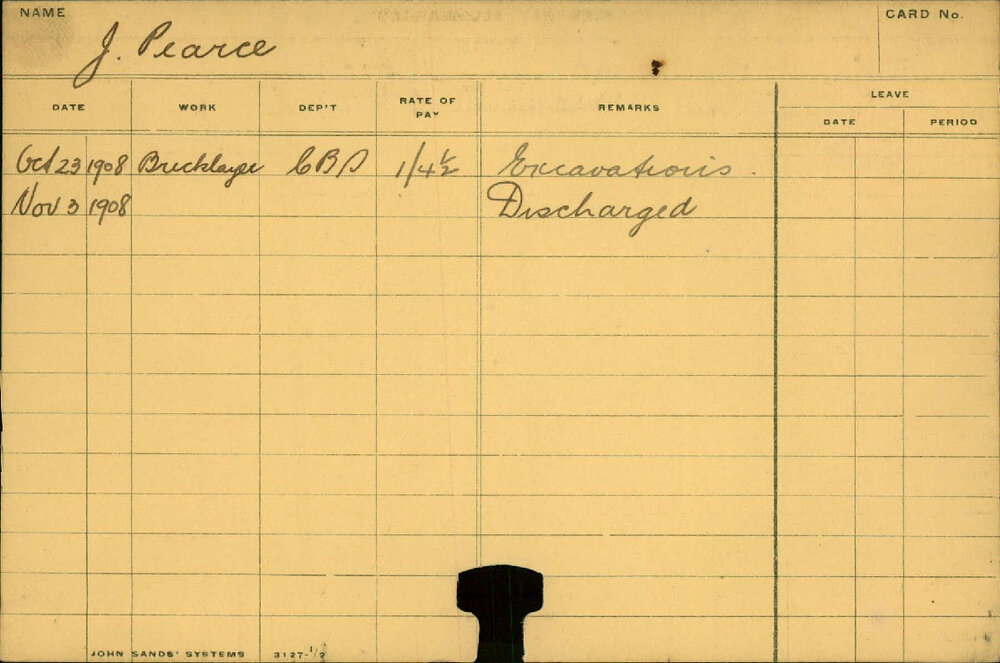 NAME
J. Pearce
CARD No.
DATE WORK DEP'T RATE OF PAY REMARKS LEAVE
DATE PERIOD
Oct 23 1908 Bricklayer 1/4½ Excavations.
Nov 3 1908 Discharged
JOHN SANDS' SYSTEMS 3127-1/2